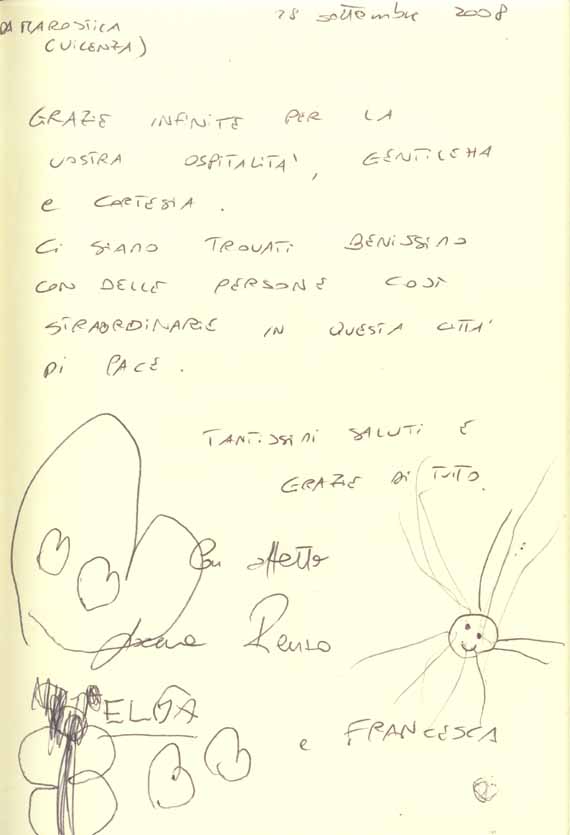 28 settembre 2008
DA MAROSTICA
(VICENZA)
GRAZIE INFINITE PER LA
VOSTRA OSPITALITA', GENTILEZZA
e CORTESIA.
Ci SIAMO TROVATI BENISSIMO
CON DELLE PERSONE COSÌ
STRAORDINARIE IN QUESTA CITTA'
Di PACE.
TANTISSIMI SALUTI E
GRAZIE DI TUTTO.
Con affetto
Renzo
ELISA
e FRANCESCA